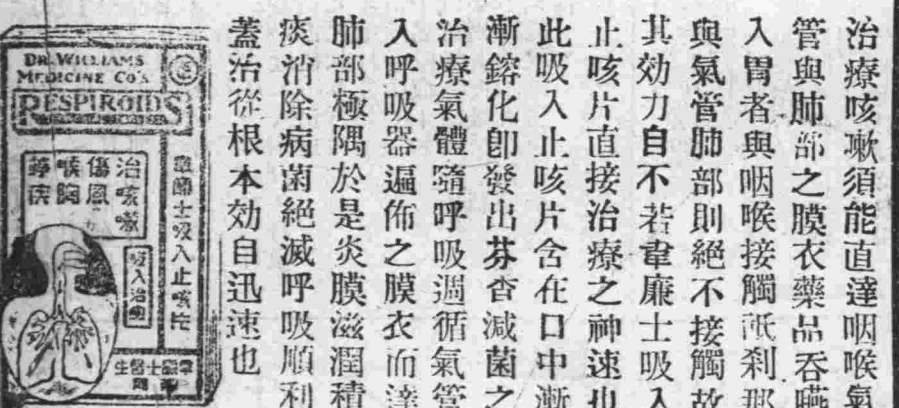 治療咳嗽須能直達咽喉氣
管與肺部之膜衣藥品吞嚥
入胃者與咽喉接觸祗剎那
與氣管肺部則絕不接觸故
其効力自不若韋廉士吸入
止咳片直接治療之神速也
此吸入止咳片含在口中漸
漸鎔化卽發出芬香減菌之
治療氣體隨呼吸週循氣管
入呼吸器遍佈之膜衣而達
肺部極隅於是炎膜滋潤積
痰消除病菌絕滅呼吸順利
蓋治從根本効自迅速也
DR. WILLIAMS
MEDICINE CO'S
RESPIROIDS
韋廉士吸入止咳片
治咳嗽
傷風
喉胸
等疾
吸入治